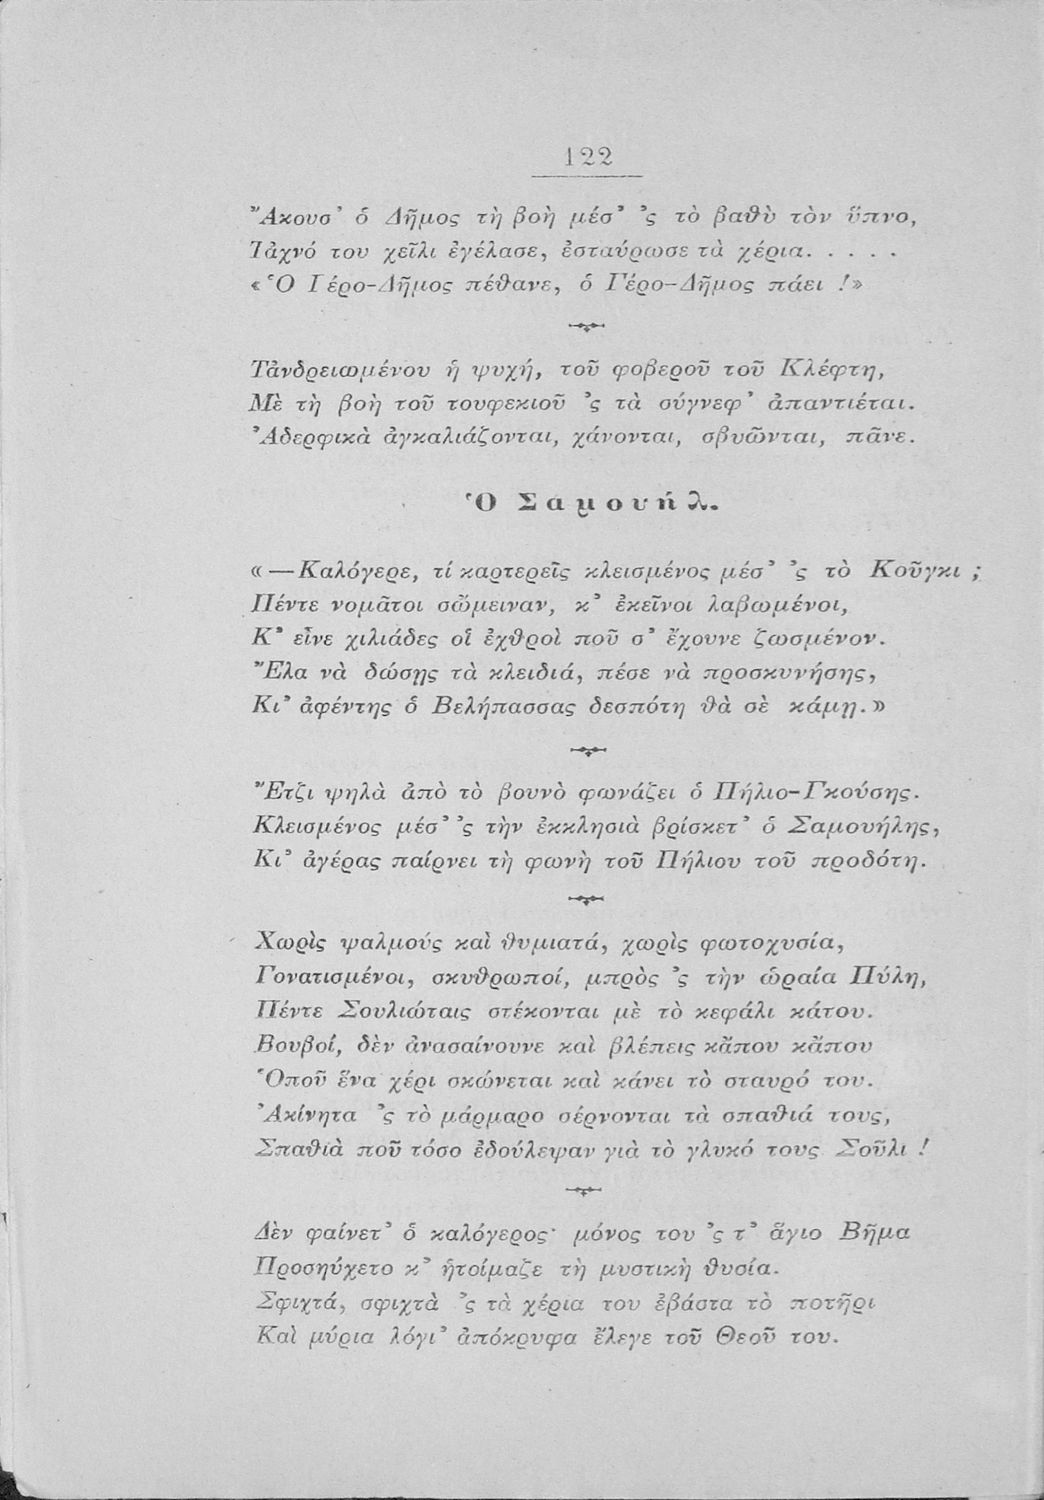 122
Ἄκουσ᾽ ὁ Δῆμος τὴ βοὴ μέσ᾽ ᾽ς τὸ βαθὺ τὸν ὕπνο,
Τἀχνό του χεῖλι ἐγέλασε, ἐσταύρωσε τὰ χέρια. . . . .
«Ὁ Γέρο-Δῆμος πέθανε, ὁ Γέρο-Δῆμος πάει !»
Τἀνδρειωμένου ἡ ψυχή, τοῦ φοβεροῦ τοῦ Κλέφτη,
Μὲ τὴ βοὴ τοῦ τουφεκιοῦ ᾽ς τὰ σύγνεφ᾽ ἀπαντιέται.
Ἀδερφικὰ ἀγκαλιάζονται, χάνονται, σβυῶνται, πᾶνε.
Ὁ Σαμουήλ.
«—Καλόγερε, τί καρτερεῖς κλεισμένος μέσ᾽ ᾽ς τὸ Κοῦγκι ;
Πέντε νομᾶτοι σὤμειναν, κ᾽ ἐκεῖνοι λαβωμένοι,
Κ᾽ εἶνε χιλιάδες οἱ ἐχθροὶ ποῦ σ᾽ ἔχουνε ζωσμένον.
Ἔλα νὰ δώσῃς τὰ κλειδιά, πέσε νὰ προσκυνήσης,
Κι᾽ ἀφέντης ὁ Βελήπασσας δεσπότη θὰ σὲ κάμῃ.»
Ἔτζι ψηλὰ ἀπὸ τὸ βουνὸ φωνάζει ὁ Πήλιο-Γκούσης.
Κλεισμένος μέσ᾽ ᾽ς τὴν ἐκκλησιὰ βρίσκετ᾽ ὁ Σαμουήλης,
Κι᾽ ἀγέρας παίρνει τὴ φωνὴ τοῦ Πήλιου τοῦ προδότη.
Χωρὶς ψαλμοὺς καὶ θυμιατά, χωρὶς φωτοχυσία,
Γονατισμένοι, σκυθρωποί, μπρὸς ᾽ς τὴν ὡραία Πύλη,
Πέντε Σουλιώταις στέκονται μὲ τὸ κεφάλι κάτου.
Βουβοί, δὲν ἀνασαίνουνε καὶ βλέπεις κἄπου κἄπου
Ὁποῦ ἕνα χέρι σκώνεται καὶ κάνει τὸ σταυρό του.
Ἀκίνητα ᾽ς τὸ μάρμαρο σέρνονται τὰ σπαθιά τους,
Σπαθιὰ ποῦ τόσο ἐδούλεψαν γιὰ τὸ γλυκό τους Σοῦλι !
Δὲν φαίνετ᾽ ὁ καλόγερος· μόνος του ᾽ς τ᾽ ἅγιο Βῆμα
Προσηύχετο κ᾽ ἡτοίμαζε τὴ μυστικὴ θυσία.
Σφιχτά, σφιχτὰ ᾽ς τὰ χέρια του ἐβάστα τὸ ποτῆρι
Καὶ μύρια λόγι᾽ ἀπόκρυφα ἔλεγε τοῦ Θεοῦ του.